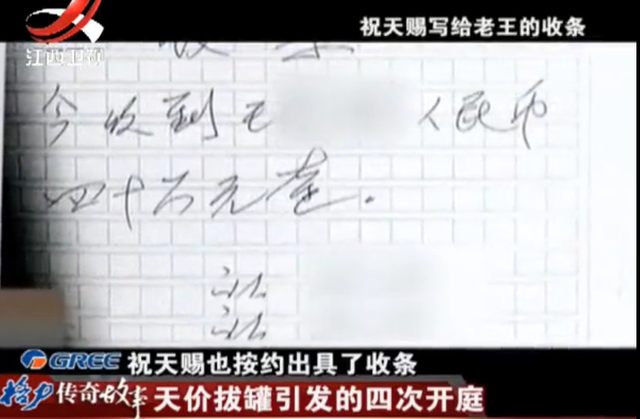 江西卫视
祝天赐写给老王的收条
今收到王 人民币
四十万元整.
GREE 祝天赐也按约出具了收条
格力 传奇故事 天价拔罐引发的四次开庭